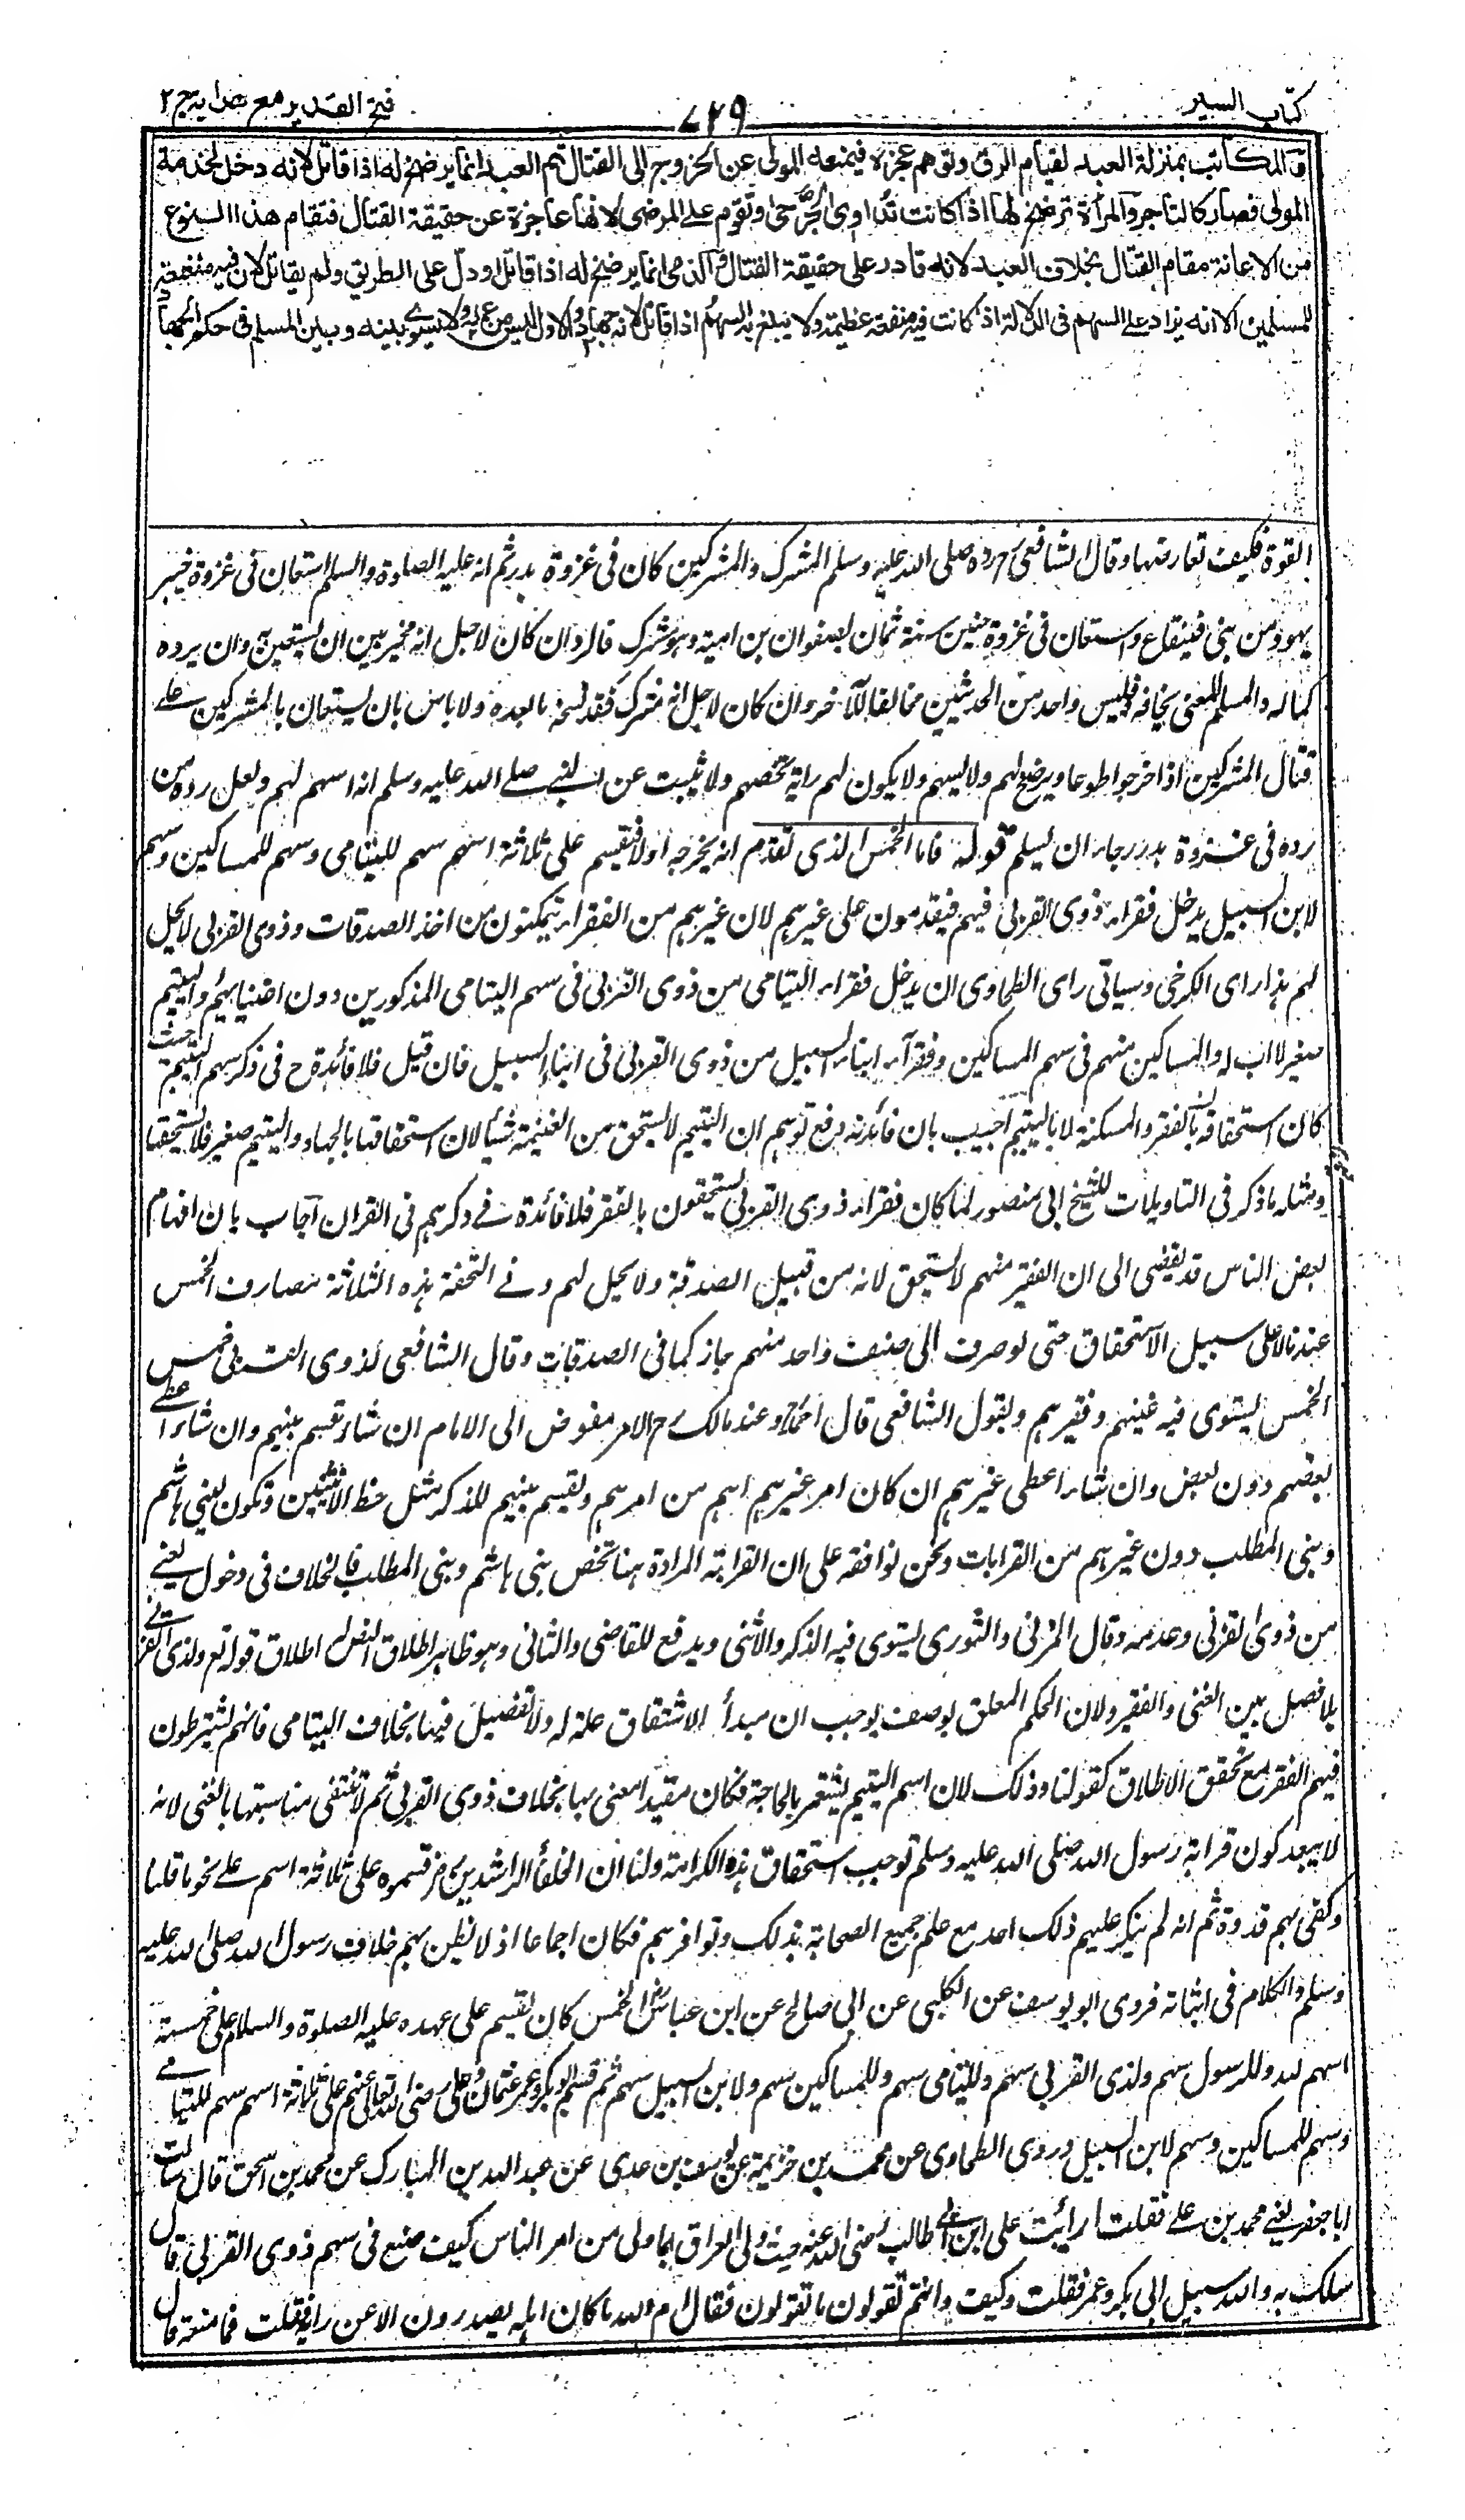 كتاب السير
٧٢٩
فتح القدير مع هدايه ج ٢
والمكاتب بمنزلة العبد لقيام الرق وتوهم عجزه فيمنعه المولى عن الخروج الى القتال ثم العبد انما يرضخ له اذا قاتل لانه دخل لخدمة
المولى فصار كالتاجر والمرأة ترضخ لها اذا كانت تداوى الجرحى وتقوم على المرضى لانها عاجزة عن حقيقة القتال فتقام هذا النوع
من الاعانة مقام القتال بخلاف العبد لانه قادر على حقيقة القتال والذمى انما يرضخ له اذا قاتل او دل على الطريق ولم يقاتل لان فيه منفعة
للمسلمين الا انه يزاد على السهم فى الدلالة اذا كانت فيه منفعة عظيمة ولا يبلغ به السهم اذا قاتل لانه جهاد والاول ليس من عمله ولا يسوى بينه وبين المسلم فى حكم الجهاد
القوة فكيف تعارضها وقال الشافعى رح رده صلى الله عليه وسلم المشرك والمشركين كان فى غزوة بدر ثم انه عليه الصلوة والسلم استعان فى غزوة خيبر
بيهود من بنى قينقاع واستعان فى غزوة حنين سنة ثمان بصفوان بن امية وهو مشرك فالرد ان كان لاجل انه مخير بين ان يستعين به وان يرده
كما له رد المسلم لمعنى يخافه فليس واحد من الحديثين مخالفا للآخر وان كان لاجل انه مشرك فقد نسخه ما بعده ولا باس بان يستعان بالمشركين على
قتال المشركين اذا خرجوا طوعا ويرضخ لهم ولا يسهم ولا يكون لهم راية تخصهم ولا يثبت عن النبى صلى الله عليه وسلم انه اسهم لهم ولعل رده من
رده فى غزوة بدر رجاء ان يسلم قوله فاما الخمس الذى تقدم انه يخرجه اولا فيقسم على ثلاثة اسهم سهم لليتامى وسهم للمساكين وسهم
لابن السبيل يدخل فقراء ذوى القربى فيهم فيقدمون على غيرهم لان غيرهم من الفقراء يتمكنون من اخذ الصدقات وذوى القربى لا يحل
لهم هذا راى الكرخى وسياتى راى الطحاوى ان يدخل فقراء اليتامى من ذوى القربى فى سهم اليتامى المذكورين دون اغنيائهم واليتيم
صغير لا اب له والمساكين منهم فى سهم المساكين وفقراء ابناء السبيل من ذوى القربى فى ابناء السبيل فان قيل فلا فائدة ح فى ذكر سهم اليتيم حيث
كان استحقاقه بالفقر والمسكنة لا باليتيم اجيب بان فائدته دفع توهم ان اليتيم لا يستحق من الغنيمة شيئا لان استحقاقها بالجهاد واليتيم صغير فلا يستحقها
ومثله ما ذكر فى التاويلات للشيخ ابى منصور لما كان فقراء ذوى القربى يستحقون بالفقر فلا فائدة فى ذكرهم فى القران اجاب بان افهام
بعض الناس قد يفضى الى ان الفقير منهم لا يستحق لانه من قبيل الصدقة ولا يحل لهم وفى التحفة هذه الثلاثة مصارف الخمس
عندنا لا على سبيل الاستحقاق حتى لو صرف الى صنف واحد منهم جاز كما فى الصدقات وقال الشافعى لذوى القربى خمس
الخمس يستوى فيه غنيهم وفقيرهم وبقول الشافعى قال احمد وعند مالك رح الامر مفوض الى الامام ان شاء قسم بينهم وان شاء اعطى
بعضهم دون بعض وان شاء اعطى غيرهم ان كان امر غيرهم اهم من امرهم ويقسم بينهم للذكر مثل حظ الانثيين وتكون لبنى هاشم
وبنى المطلب دون غيرهم من القرابات ونحن نوافقه على ان القرابة المرادة هنا تخص بنى هاشم وبنى المطلب فالخلاف فى دخول الغنى
من ذوى القربى وعدمه وقال المزنى والثورى يستوى فيه الذكر والانثى ويدفع للقاصى والدانى وهو ظاهر اطلاق النص اطلاق قوله تع ولذى القربى
بلا فصل بين الغنى والفقير ولان الحكم المعلق بوصف يوجب ان مبدأ الاشتقاق علة له ولا تفصيل فيها بخلاف اليتامى فانهم يشترطون
فيهم الفقر مع تحقق الاطلاق كقولنا وذلك لان اسم اليتيم يشعر بالحاجة فكان مقيدا معنى بها بخلاف ذوى القربى ثم لا تنتفى مناسبتها بالغنى لانه
لا يبعد كون قرابة رسول الله صلى الله عليه وسلم توجب استحقاق هذه الكرامة ولنا ان الخلفاء الراشدين رض قسموه على ثلاثة اسهم على نحو ما قلنا
وكفى بهم قدوة ثم انه لم ينكر عليهم ذلك احد مع علم جميع الصحابة بذلك وتوافرهم فكان اجماعا اذ لا يظن بهم خلاف رسول الله صلى الله عليه
وسلم والكلام فى اثباته فروى ابو يوسف عن الكلبى عن ابى صالح عن ابن عباس رض الخمس كان يقسم على عهده عليه الصلوة والسلام على خمسة
اسهم لله وللرسول سهم ولذى القربى سهم ولليتامى سهم وللمساكين سهم ولابن السبيل سهم ثم قسم ابو بكر وعمر وعثمان وعلى رضى الله تعالى عنهم على ثلاثة اسهم سهم لليتامى
وسهم للمساكين وسهم لابن السبيل وروى الطحاوى عن محمد بن خزيمة عن يوسف بن عدى عن عبد الله بن المبارك عن محمد بن اسحق قال سالت
ابا جعفر يعنى محمد بن على فقلت ارايت على ابن ابى طالب رضى الله عنه حيث ولى العراق وما ولى من امر الناس كيف صنع فى سهم ذوى القربى قال
سلك به والله سبيل ابى بكر وعمر فقلت وكيف وانتم تقولون ما تقولون فقال ام والله ما كان اهله يصدرون الا عن رايه فقلت فما منعه قال